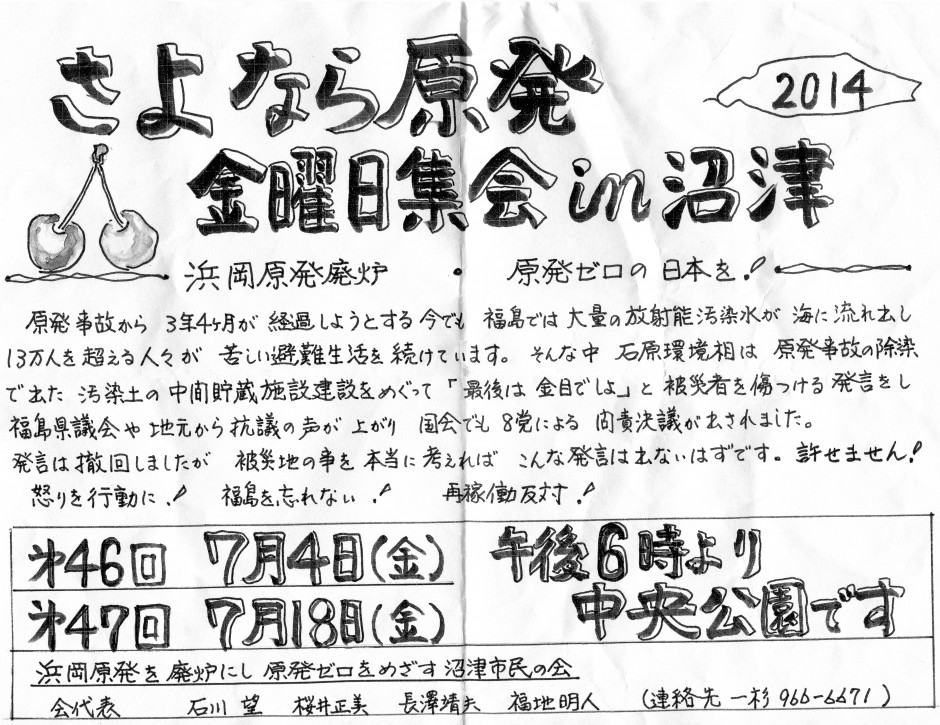 さよなら原発
2014
金曜日集会in沼津
浜岡原発廃炉 ・ 原発ゼロの日本を!
原発事故から 3年4ヶ月が 経過しようとする今でも 福島では大量の放射能汚染水が 海に流れ出し
13万人を超える人々が 苦しい避難生活を続けています。そんな中 石原環境相は 原発事故の除染
で出た 汚染土の中間貯蔵施設建設をめぐって「最後は金目でしょ」と 被災者を傷つける発言をし
福島県議会や地元から抗議の声が上がり 国会でも 8党による 問責決議が出されました。
発言は撤回しましたが 被災地の事を本当に考えれば こんな発言は出ないはずです。許せません!
怒りを行動に! 福島を忘れない! 再稼働反対!
㐧46回 7月4日(金) 午後6時より
㐧47回 7月18日(金) 中央公園です
浜岡原発を廃炉にし 原発ゼロをめざす沼津市民の会
会代表 石川 望 桜井正美 長澤靖夫 福地明人 (連絡先 一杉 966-6671)